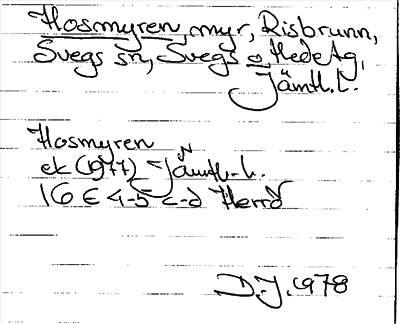 Hosmyren, myr, Risbrunn,
Svegs sn, Svegs o Hede tg,
Jämtl. l.
Hosmyren
ek (1977) Jämtl. l.
16 E 4-5 c-d Herrö
D.J. 1978